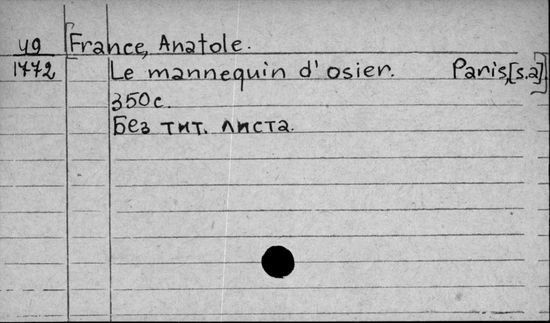 49 [France, Anatole.
1772 Le mannequin d'osier. Paris,[s.a.]]
350с.
Без тит. листа.